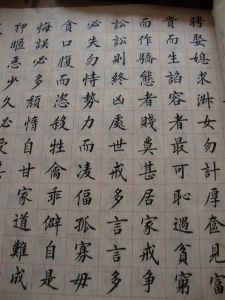 聘娶媳求淑女勿計厚奩見富
貴而生諂容者最可恥過貧窮
而作驕態者賤莫甚居家戒争
訟訟則終凶處世戒多言言多
必失勿恃勢力而凌偪孤寡毋
貪口腹而恣殺牲禽乖僻自是
悔誤必多頹惰自甘家道難成
狎昵惡少久必受